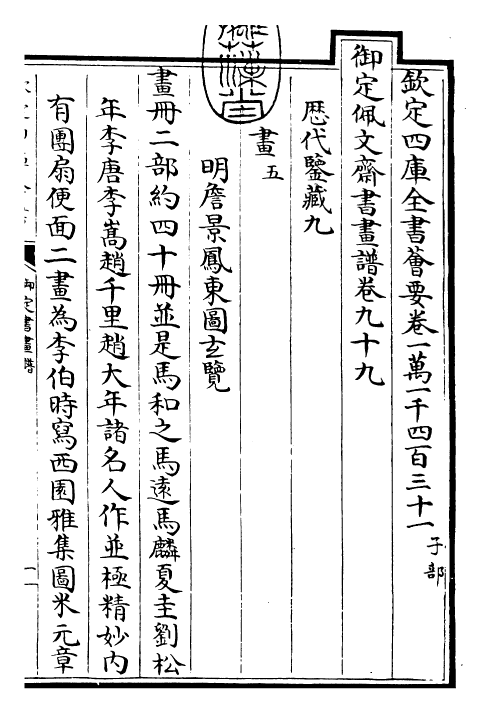 欽定四庫全書薈要卷一萬一千四百三十一 子部
御定佩文齋書畫譜卷九十九
歴代鑒藏九
畫五
明詹景鳳東圖𤣥覽
畫冊二部約四十冊並是馬和之馬遠馬麟夏圭劉松
年李唐李嵩趙千里趙大年諸名人作並極精妙内
有團扇便面二畫為李伯時寫西園雅集圖米元章
御定書畫譜